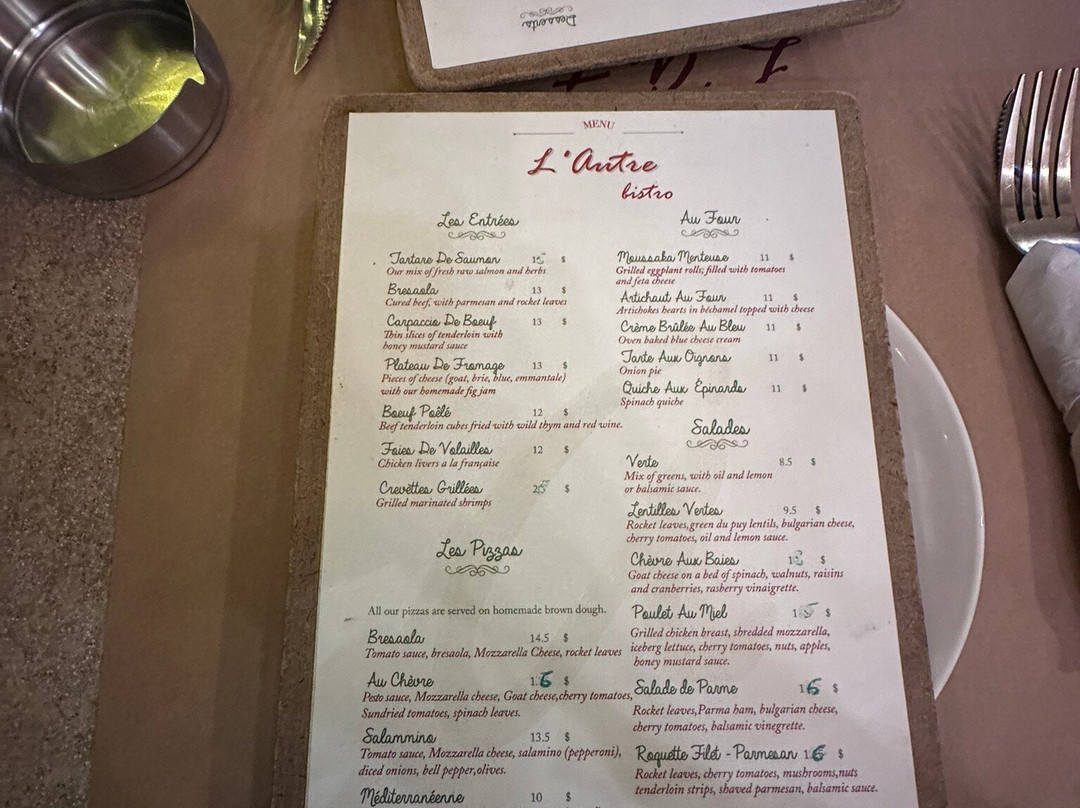 Desserts
L'Autre
MENU
L'Autre
bistro
Les Entrées
Tartare De Saumon 15 $
Our mix of fresh raw salmon and herbs
Bresaola 13 $
Cured beef, with parmesan and rocket leaves
Carpaccio De Boeuf 13 $
Thin slices of tenderloin with
honey mustard sauce
Plateau De Fromage 13 $
Pieces of cheese (goat, brie, blue, emmantale)
with our homemade fig jam
Boeuf Poêlé 12 $
Beef tenderloin cubes fried with wild thym and red wine.
Foies De Volailles 12 $
Chicken livers a la française
Crevèttes Grillées 25 $
Grilled marinated shrimps
Les Pizzas
All our pizzas are served on homemade brown dough.
Bresaola 14.5 $
Tomato sauce, bresaola, Mozzarella Cheese, rocket leaves
Au Chèvre 16 $
Pesto sauce, Mozzarella cheese, Goat cheese,cherry tomatoes,
Sundried tomatoes, spinach leaves.
Salammino 13.5 $
Tomato sauce, Mozzarella cheese, salamino (pepperoni),
diced onions, bell pepper,olives.
Méditerranéenne 10 $
Au Four
Moussaka Menteuse 11 $
Grilled eggplant rolls; filled with tomatoes
and feta cheese
Artichaut Au Four 11 $
Artichokes hearts in béchamel topped with cheese
Crème Brûlée Au Bleu 11 $
Oven baked blue cheese cream
Tarte Aux Oignons 11 $
Onion pie
Quiche Aux Épinards 11 $
Spinach quiche
Salades
Verte 8.5 $
Mix of greens, with oil and lemon
or balsamic sauce.
Lentilles Vertes 9.5 $
Rocket leaves,green du puy lentils, bulgarian cheese,
cherry tomatoes, oil and lemon sauce.
Chèvre Aux Baies $
Goat cheese on a bed of spinach, walnuts, raisins
and cranberries, rasberry vinaigrette.
Poulet Au Miel 15 $
Grilled chicken breast, shredded mozzarella,
iceberg lettuce, cherry tomatoes, nuts, apples,
honey mustard sauce.
Salade de Parme 16 $
Rocket leaves,Parma ham, bulgarian cheese,
cherry tomatoes, balsamic vinegrette.
Roquette Filet - Parmesan 16 $
Rocket leaves, cherry tomatoes, mushrooms,nuts
tenderloin strips, shaved parmesan, balsamic sauce.